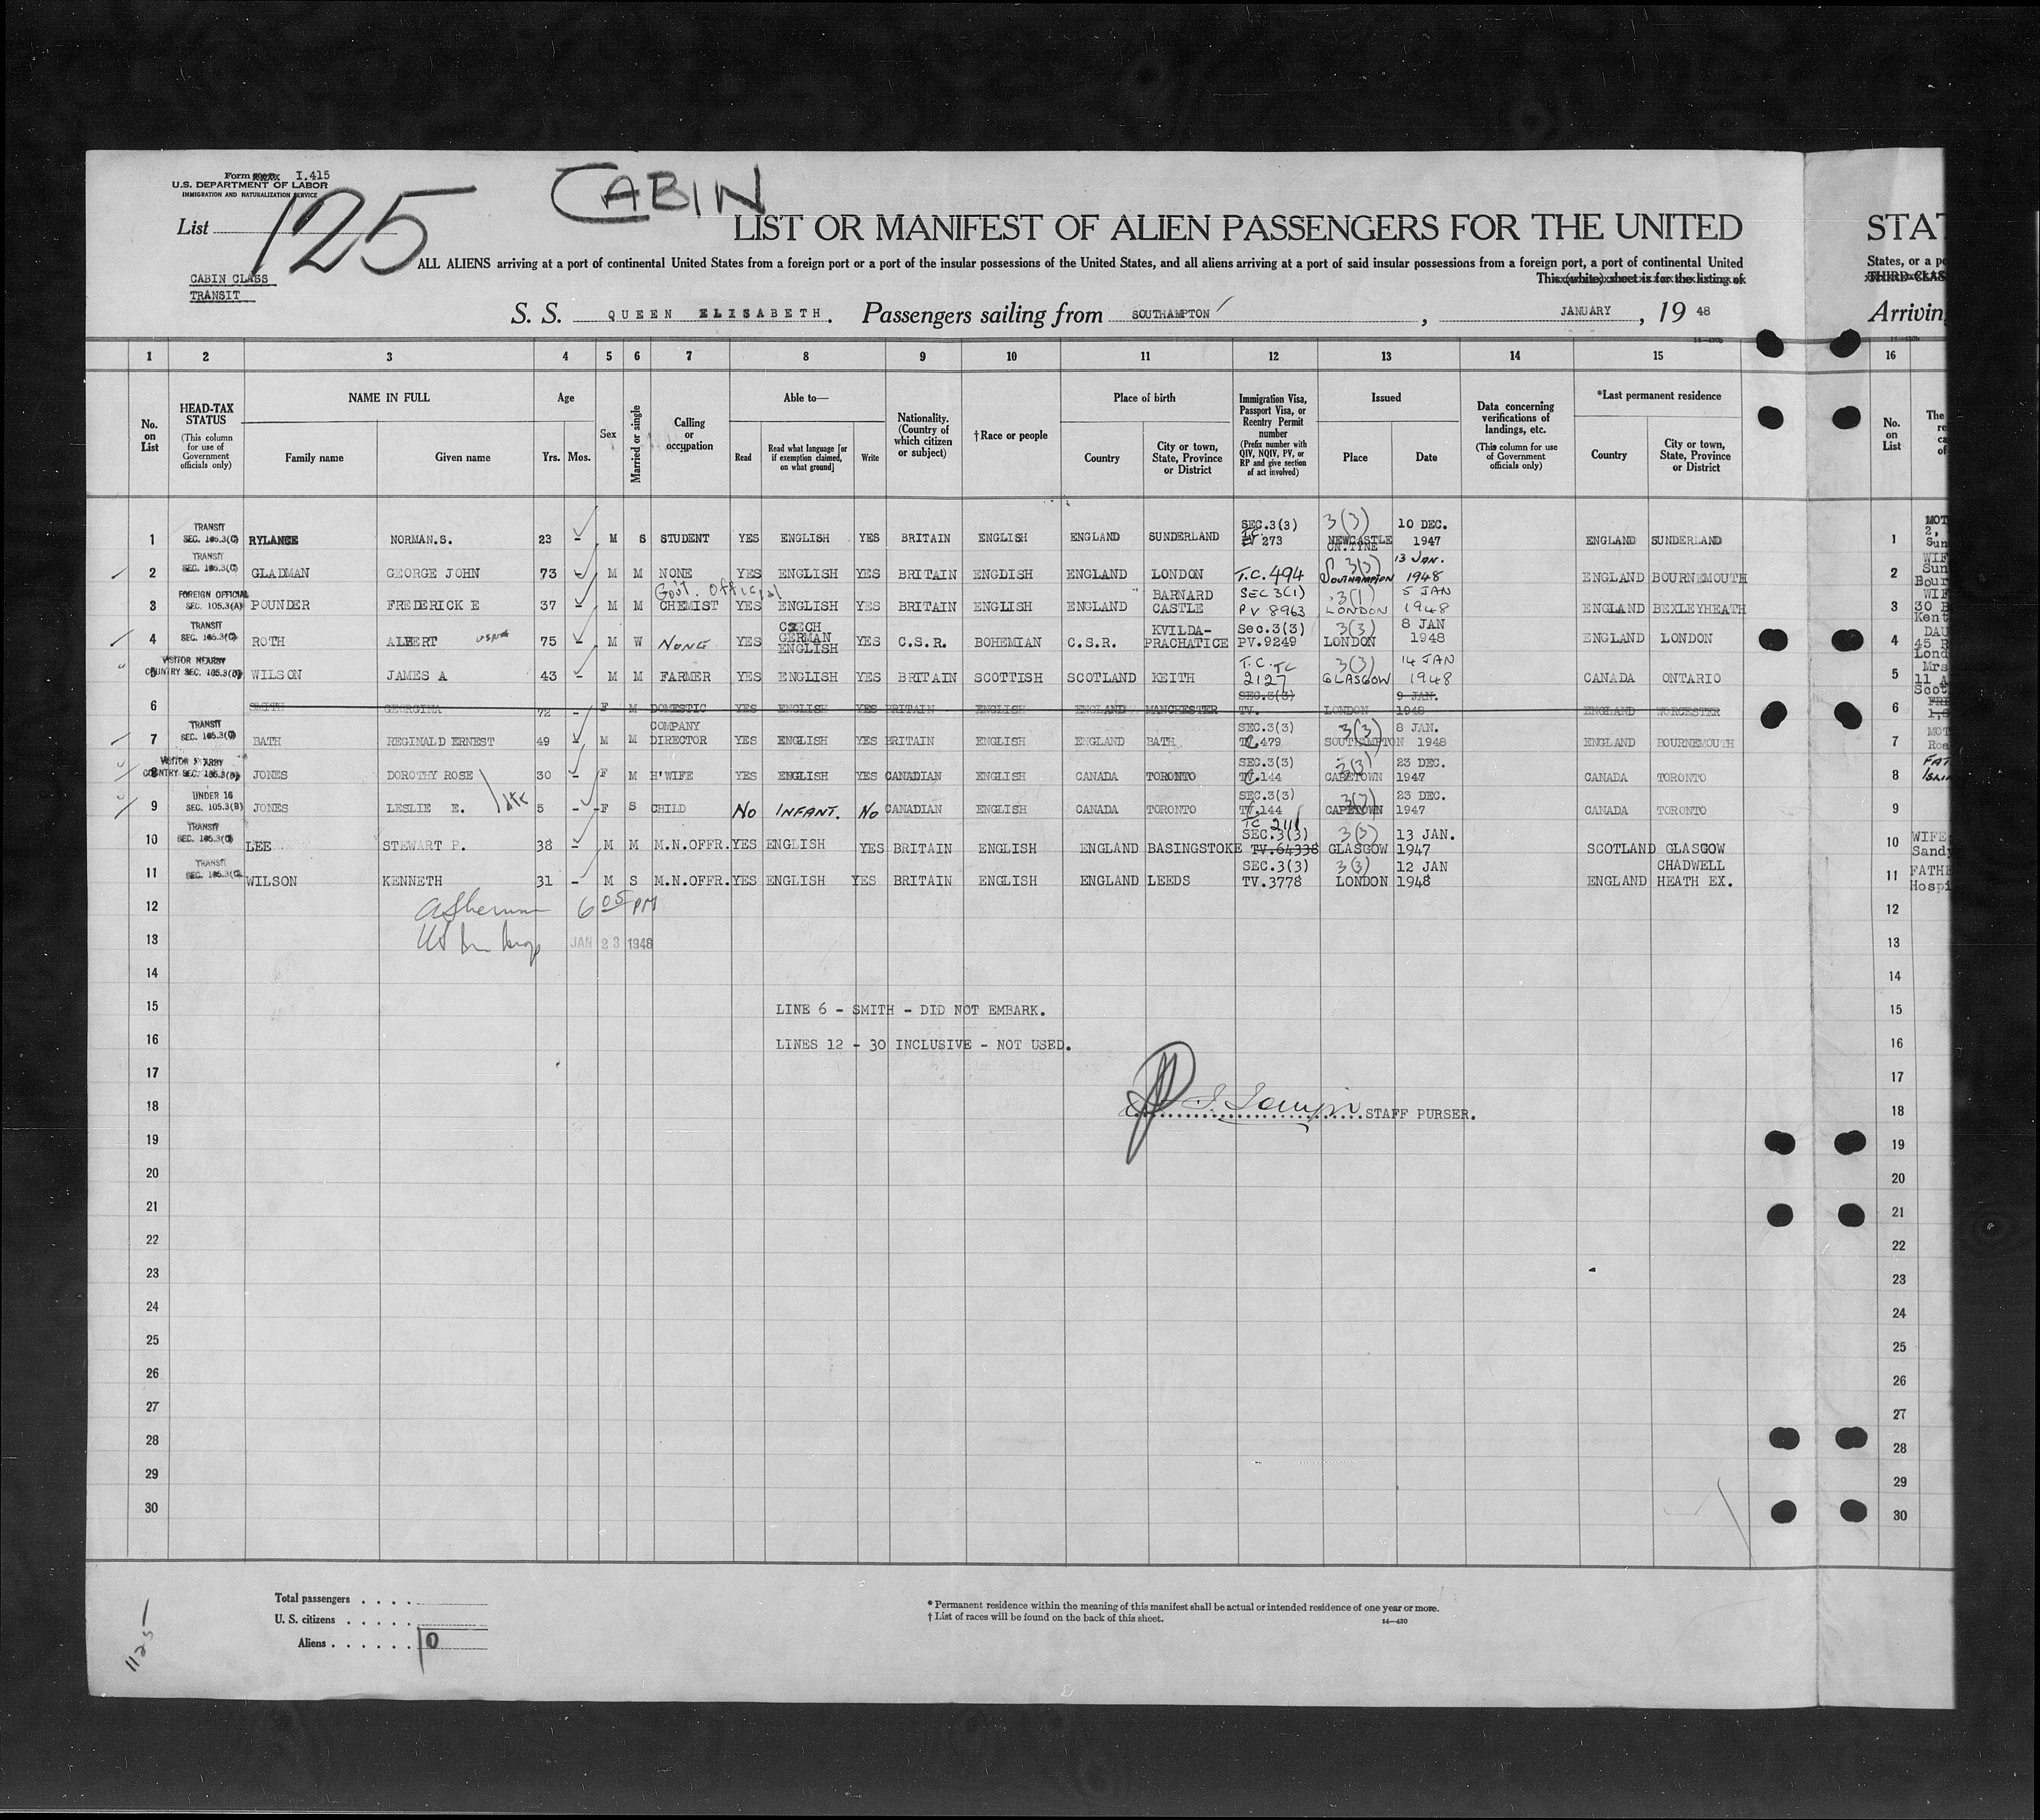 Form I.415
U.S. DEPARTMENT OF LABOR
IMMIGRATION AND NATURALIZATION SERVICE
List 125
CABIN
LIST OR MANIFEST OF ALIEN PASSENGERS FOR THE UNITED
STAT
ALL ALIENS arriving at a port of continental United States from a foreign port or a port of the insular possessions of the United States, and all aliens arriving at a port of said insular possessions from a foreign port, a port of continental United
States, or a po
CABIN CLASS
TRANSIT
This (white) sheet is for the listing of
THIRD-CLAS
S. S. QUEEN ELISABETH. Passengers sailing from SOUTHAMPTON, JANUARY, 19 48
Arriving
1 2 3 4 5 6 7 8 9 10 11 12 13 14 15 16
No. on List
HEAD-TAX STATUS (This column for use of Government officials only)
NAME IN FULL Family name Given name
Age Yrs. Mos.
Sex
Married or single
Calling or occupation
Able to— Read Read what language [or if exemption claimed, on what ground] Write
Nationality. (Country of which citizen or subject)
†Race or people
Place of birth Country City or town, State, Province or District
Immigration Visa, Passport Visa, or Reentry Permit number (Prefix number with QIV, NQIV, PV, or RP and give section of act involved)
Issued Place Date
Data concerning verifications of landings, etc. (This column for use of Government officials only)
*Last permanent residence Country City or town, State, Province or District
No. on List
1 TRANSIT SEC. 105.3(C) RYLANCE NORMAN.S. 23 - M S STUDENT YES ENGLISH YES BRITAIN ENGLISH ENGLAND SUNDERLAND SEC.3(3) 273 3(3) NEWCASTLE ON.TYNE 10 DEC. 1947 ENGLAND SUNDERLAND 1
2 TRANSIT SEC. 105.3(C) GLADMAN GEORGE JOHN 73 - M M NONE YES ENGLISH YES BRITAIN ENGDISH ENGLAND LONDON T.C.494 3(3) SOUTHAMPTON 13 JAN. 1948 ENGLAND BOURNEMOUTH 2
3 FOREIGN OFFICIAL SEC. 105.3(A) POUNDER FREDERICK E 37 - M M Gov't. Official CHEMIST YES ENGLISH YES BRITAIN ENGLISH ENGLAND BARNARD CASTLE SEC 3(1) PV 8963 3(1) LONDON 5 JAN 1948 ENGLAND BEXLEYHEATH 3
4 TRANSIT SEC. 105.3(C) ROTH ALBERT 75 - M W NONE YES CZECH GERMAN ENGLISH YES C.S.R. BOHEMIAN C.S.R. KVILDA-PRACHATICE Sec.3(3) PV.9249 3(3) LONDON 8 JAN 1948 ENGLAND LONDON 4
5 VISITOR NEARBY COUNTRY SEC. 105.3(B) WILSON JAMES A 43 - M M FARMER YES ENGLISH YES BRITAIN SCOTTISH SCOTLAND KEITH T.C. TC 2127 3(3) GLASGOW 14 JAN 1948 CANADA ONTARIO 5
6 SMITH GEORGINA 72 - F M DOMESTIC YES ENGLISH YES BRITAIN ENGLISH ENGLAND MANCHESTER SEC.3(3) TV. LONDON 9 JAN. 1948 ENGLAND WORCESTER 6
7 TRANSIT SEC. 105.3(C) BATH REGINALD ERNEST 49 - M M COMPANY DIRECTOR YES ENGLISH YES BRITAIN ENGLISH ENGLAND BATH SEC.3(3) 479 3(3) SOUTHAMPTON 8 JAN. 1948 ENGLAND BOURNEMOUTH 7
8 VISITOR NEARBY COUNTRY SEC. 105.3(B) JONES DOROTHY ROSE 30 - F M H'WIFE YES ENGLISH YES CANADIAN ENGLISH CANADA TORONTO SEC.3(3) 144 3(3) CAPETOWN 23 DEC. 1947 CANADA TORONTO 8
9 UNDER 16 SEC. 105.3(B) JONES LESLIE E. 5 - F S CHILD No INFANT. No CANADIAN ENGLISH CANADA TORONTO SEC.3(3) 144 3(3) CAPETOWN 23 DEC. 1947 CANADA TORONTO 9
10 TRANSIT SEC. 105.3(C) LEE STEWART P. 38 - M M M.N.OFFR. YES ENGLISH YES BRITAIN ENGLISH ENGLAND BASINGSTOKE TC 2111 SEC.3(3) TV.64338 3(3) GLASGOW 13 JAN. 1947 SCOTLAND GLASGOW 10
11 TRANSIT SEC. 105.3(C) WILSON KENNETH 31 - M S M.N.OFFR. YES ENGLISH YES BRITAIN ENGLISH ENGLAND LEEDS SEC.3(3) TV.3778 3(3) LONDON 12 JAN 1948 ENGLAND CHADWELL HEATH EX. 11
12 6 05 PM 12
13 JAN 23 1948 13
14 14
15 LINE 6 - SMITH - DID NOT EMBARK. 15
16 LINES 12 - 30 INCLUSIVE - NOT USED. 16
17 17
18 STAFF PURSER. 18
19 19
20 20
21 21
22 22
23 23
24 24
25 25
26 26
27 27
28 28
29 29
30 30
Total passengers . . . .
U. S. citizens . . . . .
Aliens . . . . . . 10
* Permanent residence within the meaning of this manifest shall be actual or intended residence of one year or more.
† List of races will be found on the back of this sheet.
14—430